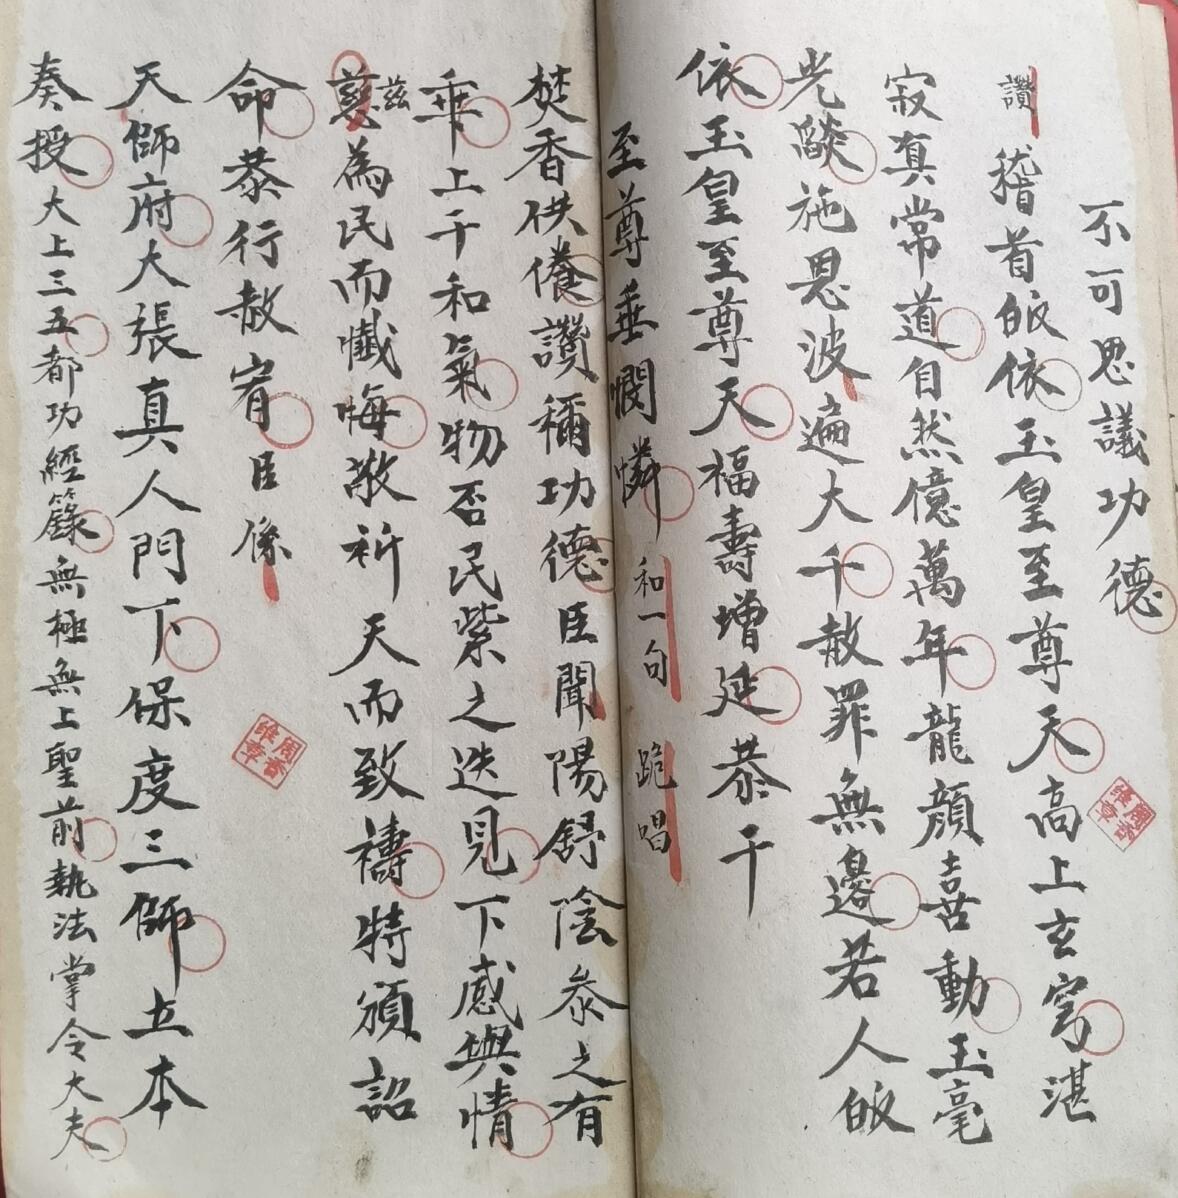 不可思議功德
讚 稽首皈依玉皇至尊天高上玄穹湛
寂真常道自然億萬年龍顔喜動玉毫
光燄施恩波遍大千赦罪無邊若人皈
依玉皇至尊天福壽增延恭干
至尊垂憫憐 和一句 跪唱
焚香供養讚稱功德臣聞陽舒陰慘之有
乖上干和氣物否民紫之迭見下感輿情
兹為民而懺悔敬祈天而致禱特頒詔
命恭行赦宥臣係
天師府大張真人門下保度三師立本
奏授大上三五都功經籙無極無上聖前執法掌令大夫
周香維章
周香維章